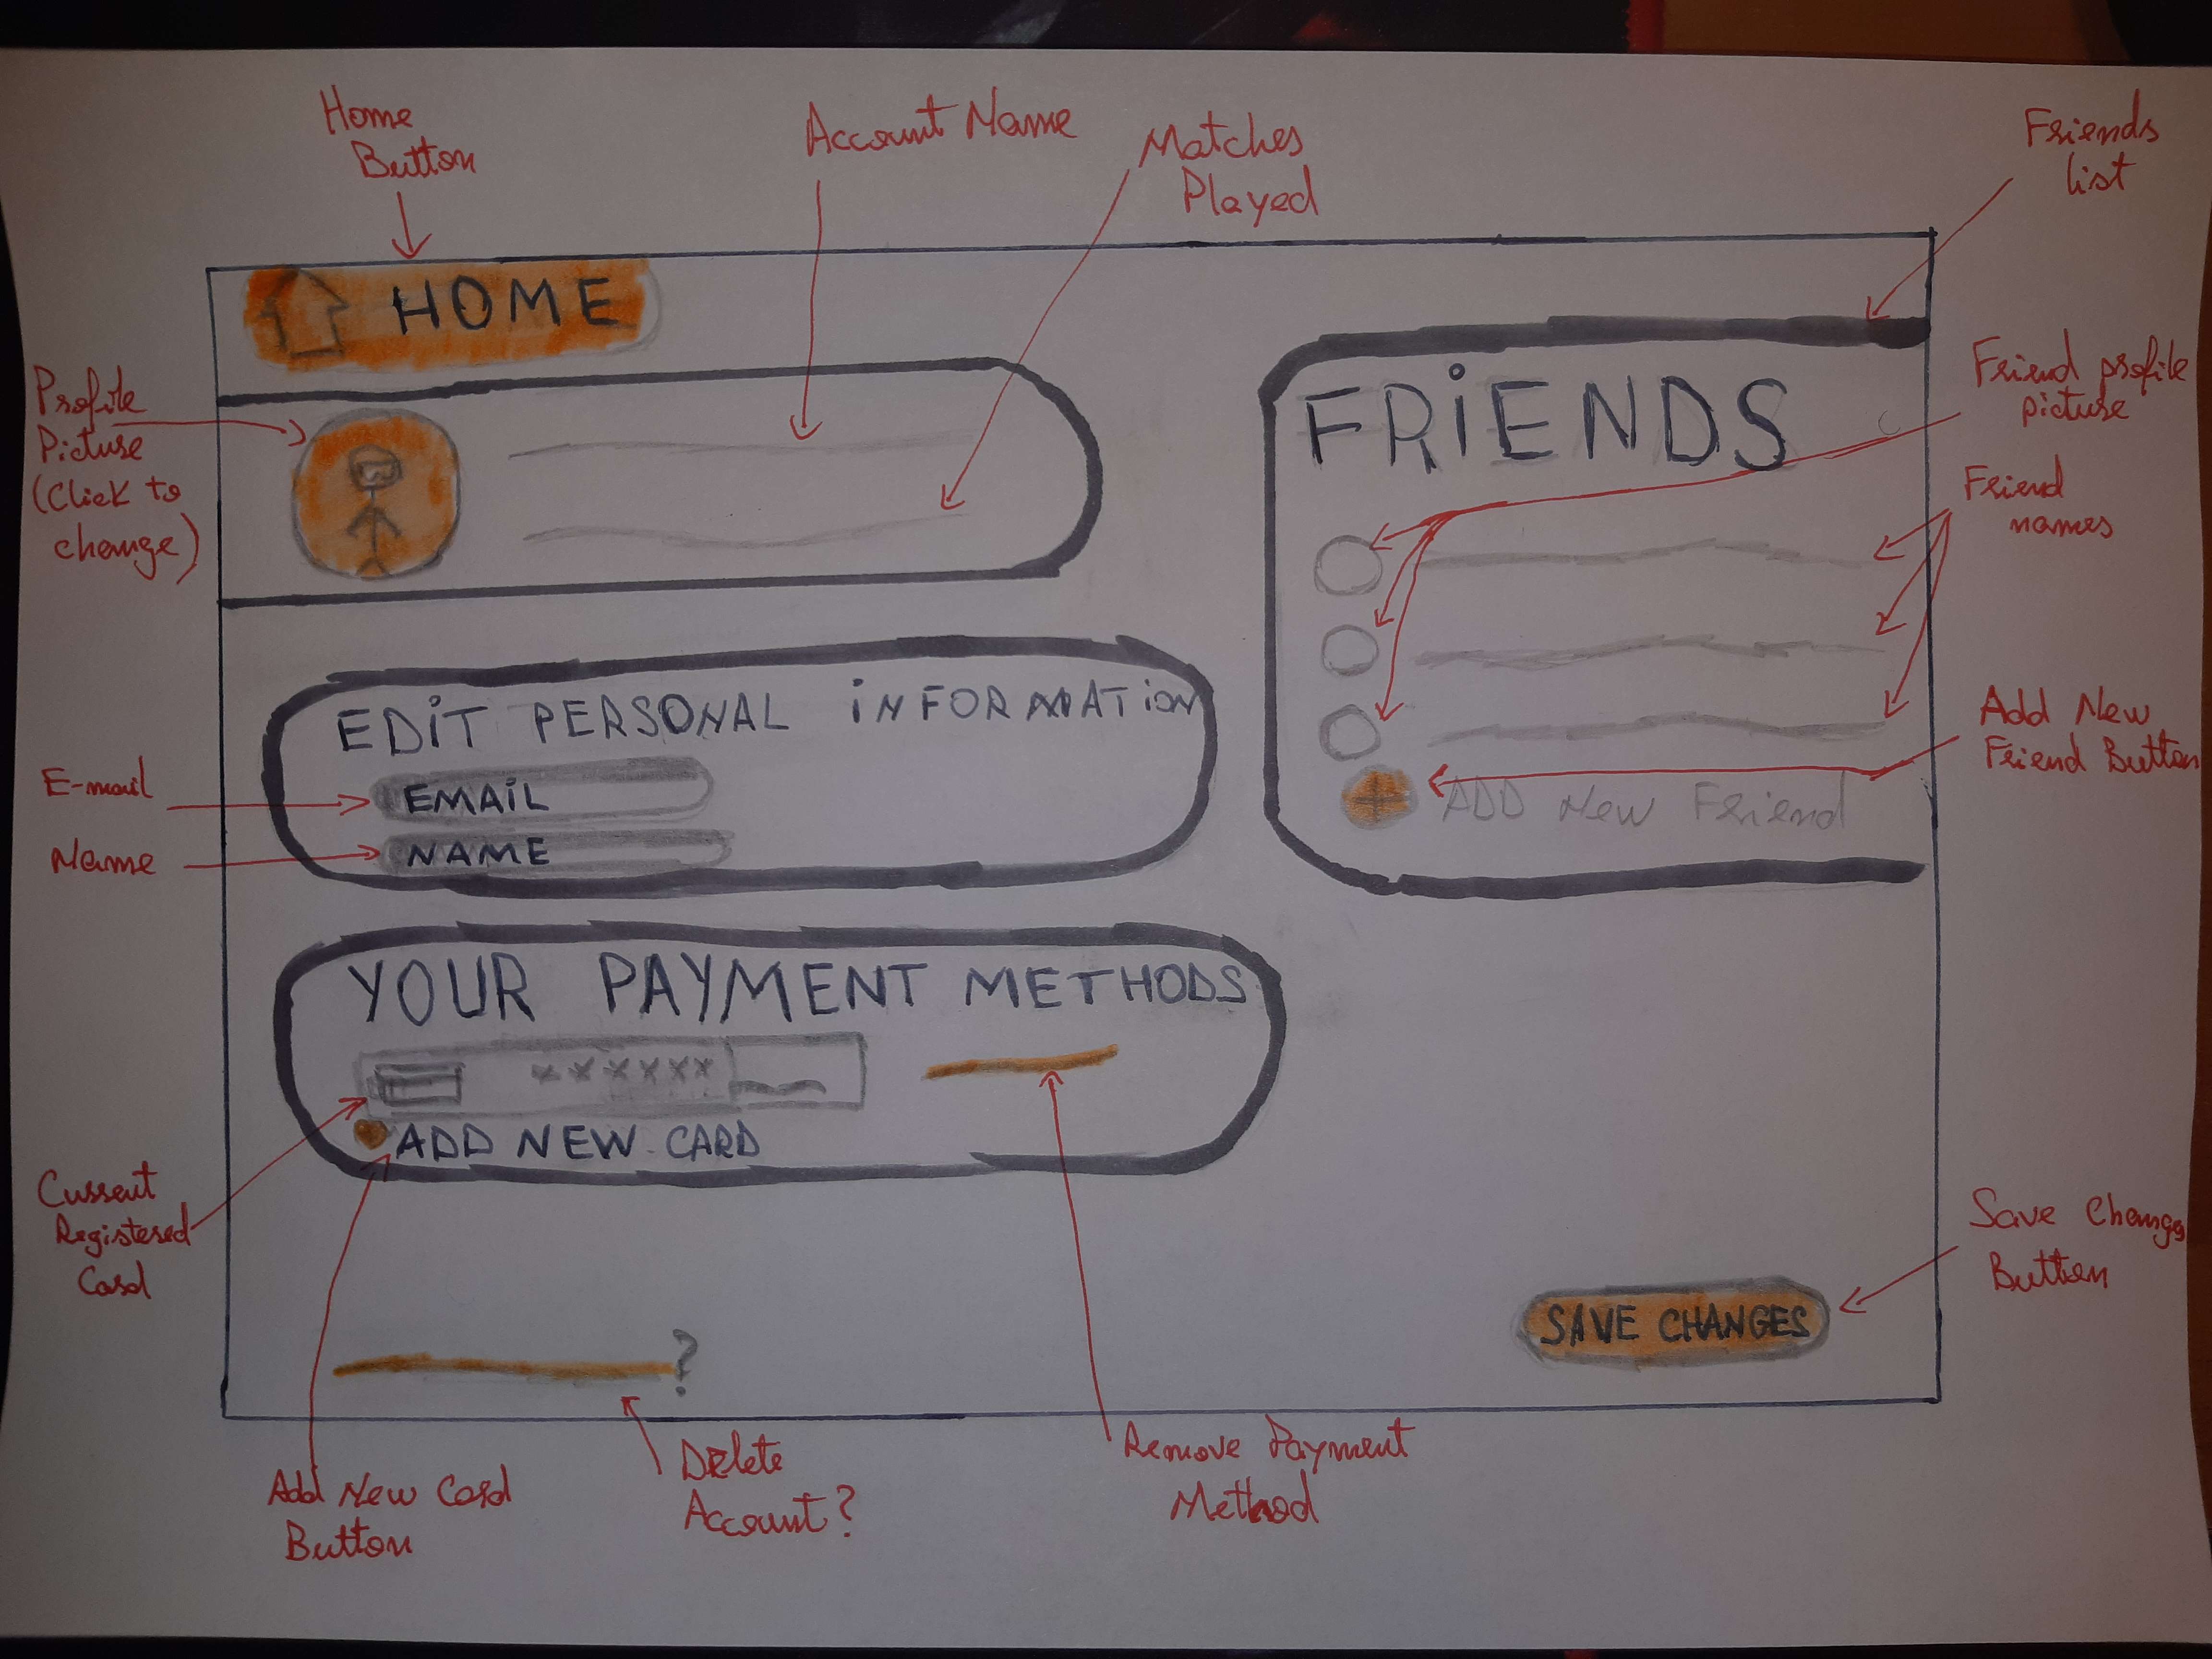 Home
Button
Account Name
Matches
Played
Friends
list
HOME
Profile
Picture
(Click to
change)
FRiENDS
Friend profile
picture
Friend
names
EDiT PERSONAL iNFORMATiON
E-mail
EMAiL
Name
NAME
Add New
Friend Button
ADD New Friend
YOUR PAYMENT METHODS
××××××
ADD NEW CARD
Current
Registered
Card
Save Changes
Button
SAVE CHANGES
?
Add New Card
Button
Delete
Account?
Remove Payment
Method